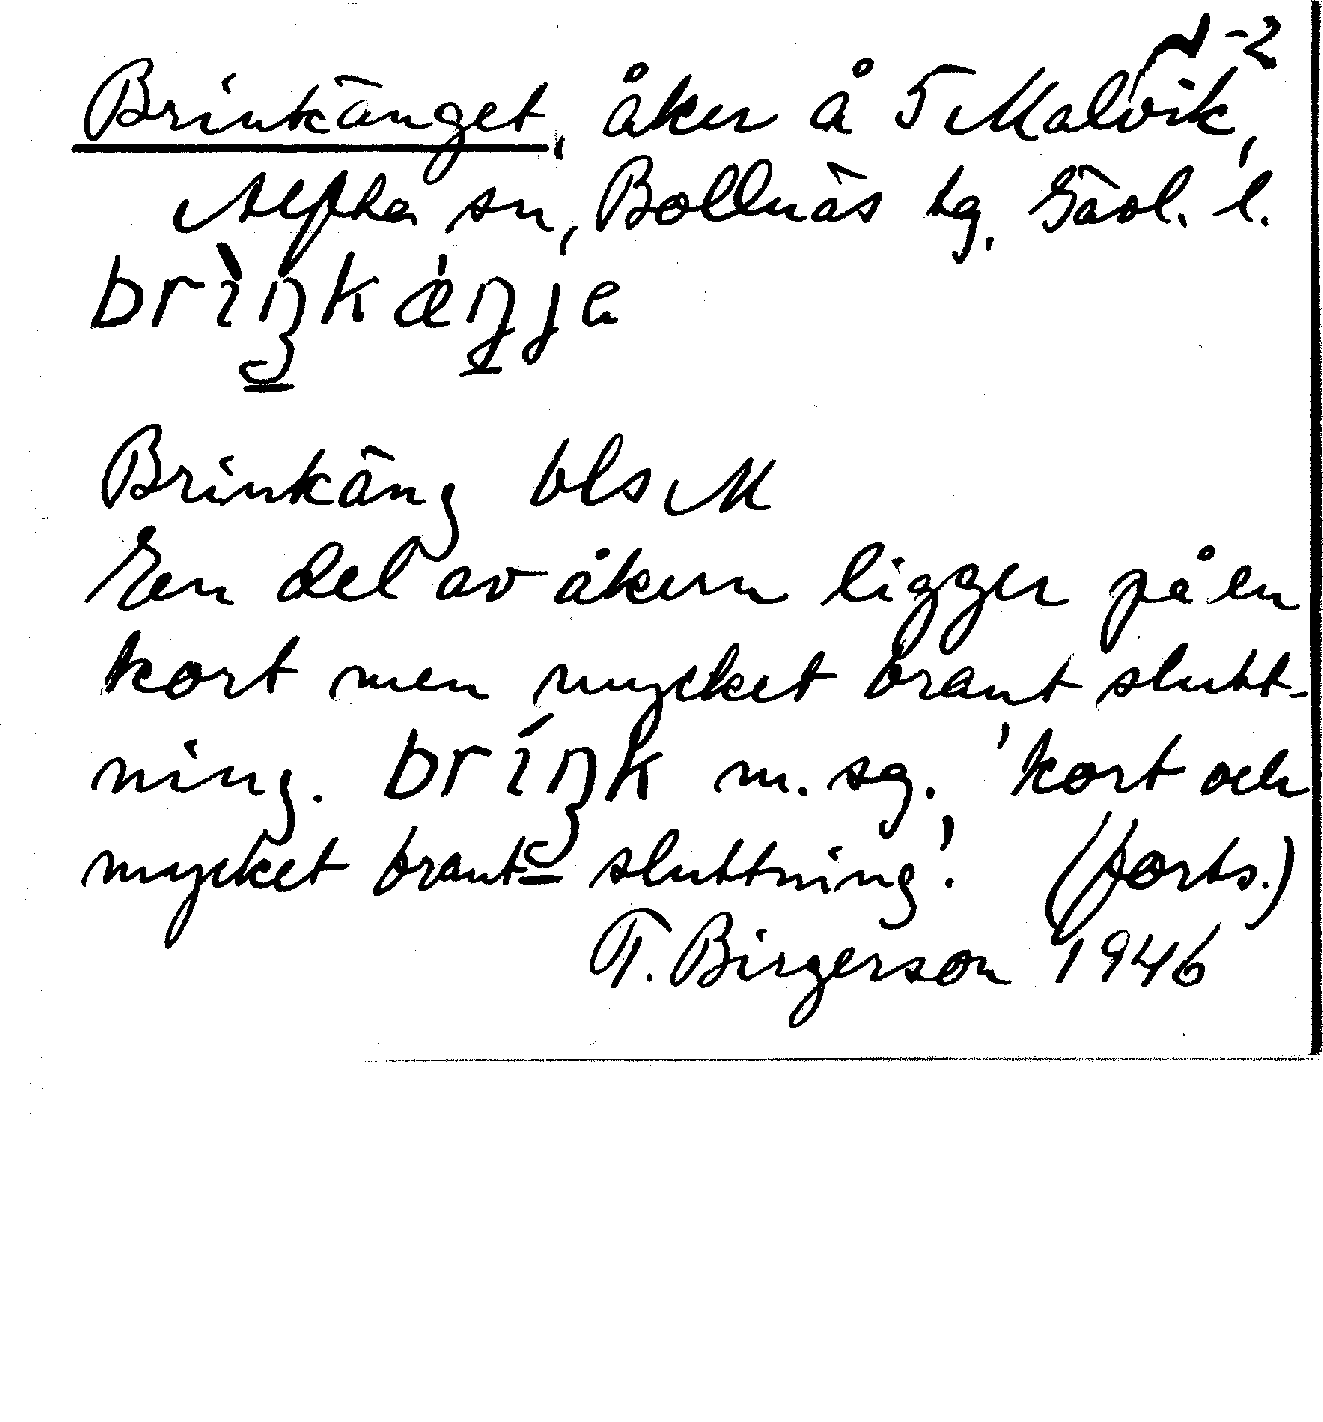 -2
Brinkänget, åker å 5 Malvik,
Alfta sn, Bollnäs tg. Gävl. l.
brìŋkæ̀ŋja
Brinkäng bls M
En del av åkern ligger på en
kort men mycket brant slutt-
ning. bríŋk m. sg. 'kort och
mycket brant sluttning'. (forts.)
T. Birgerson 1946